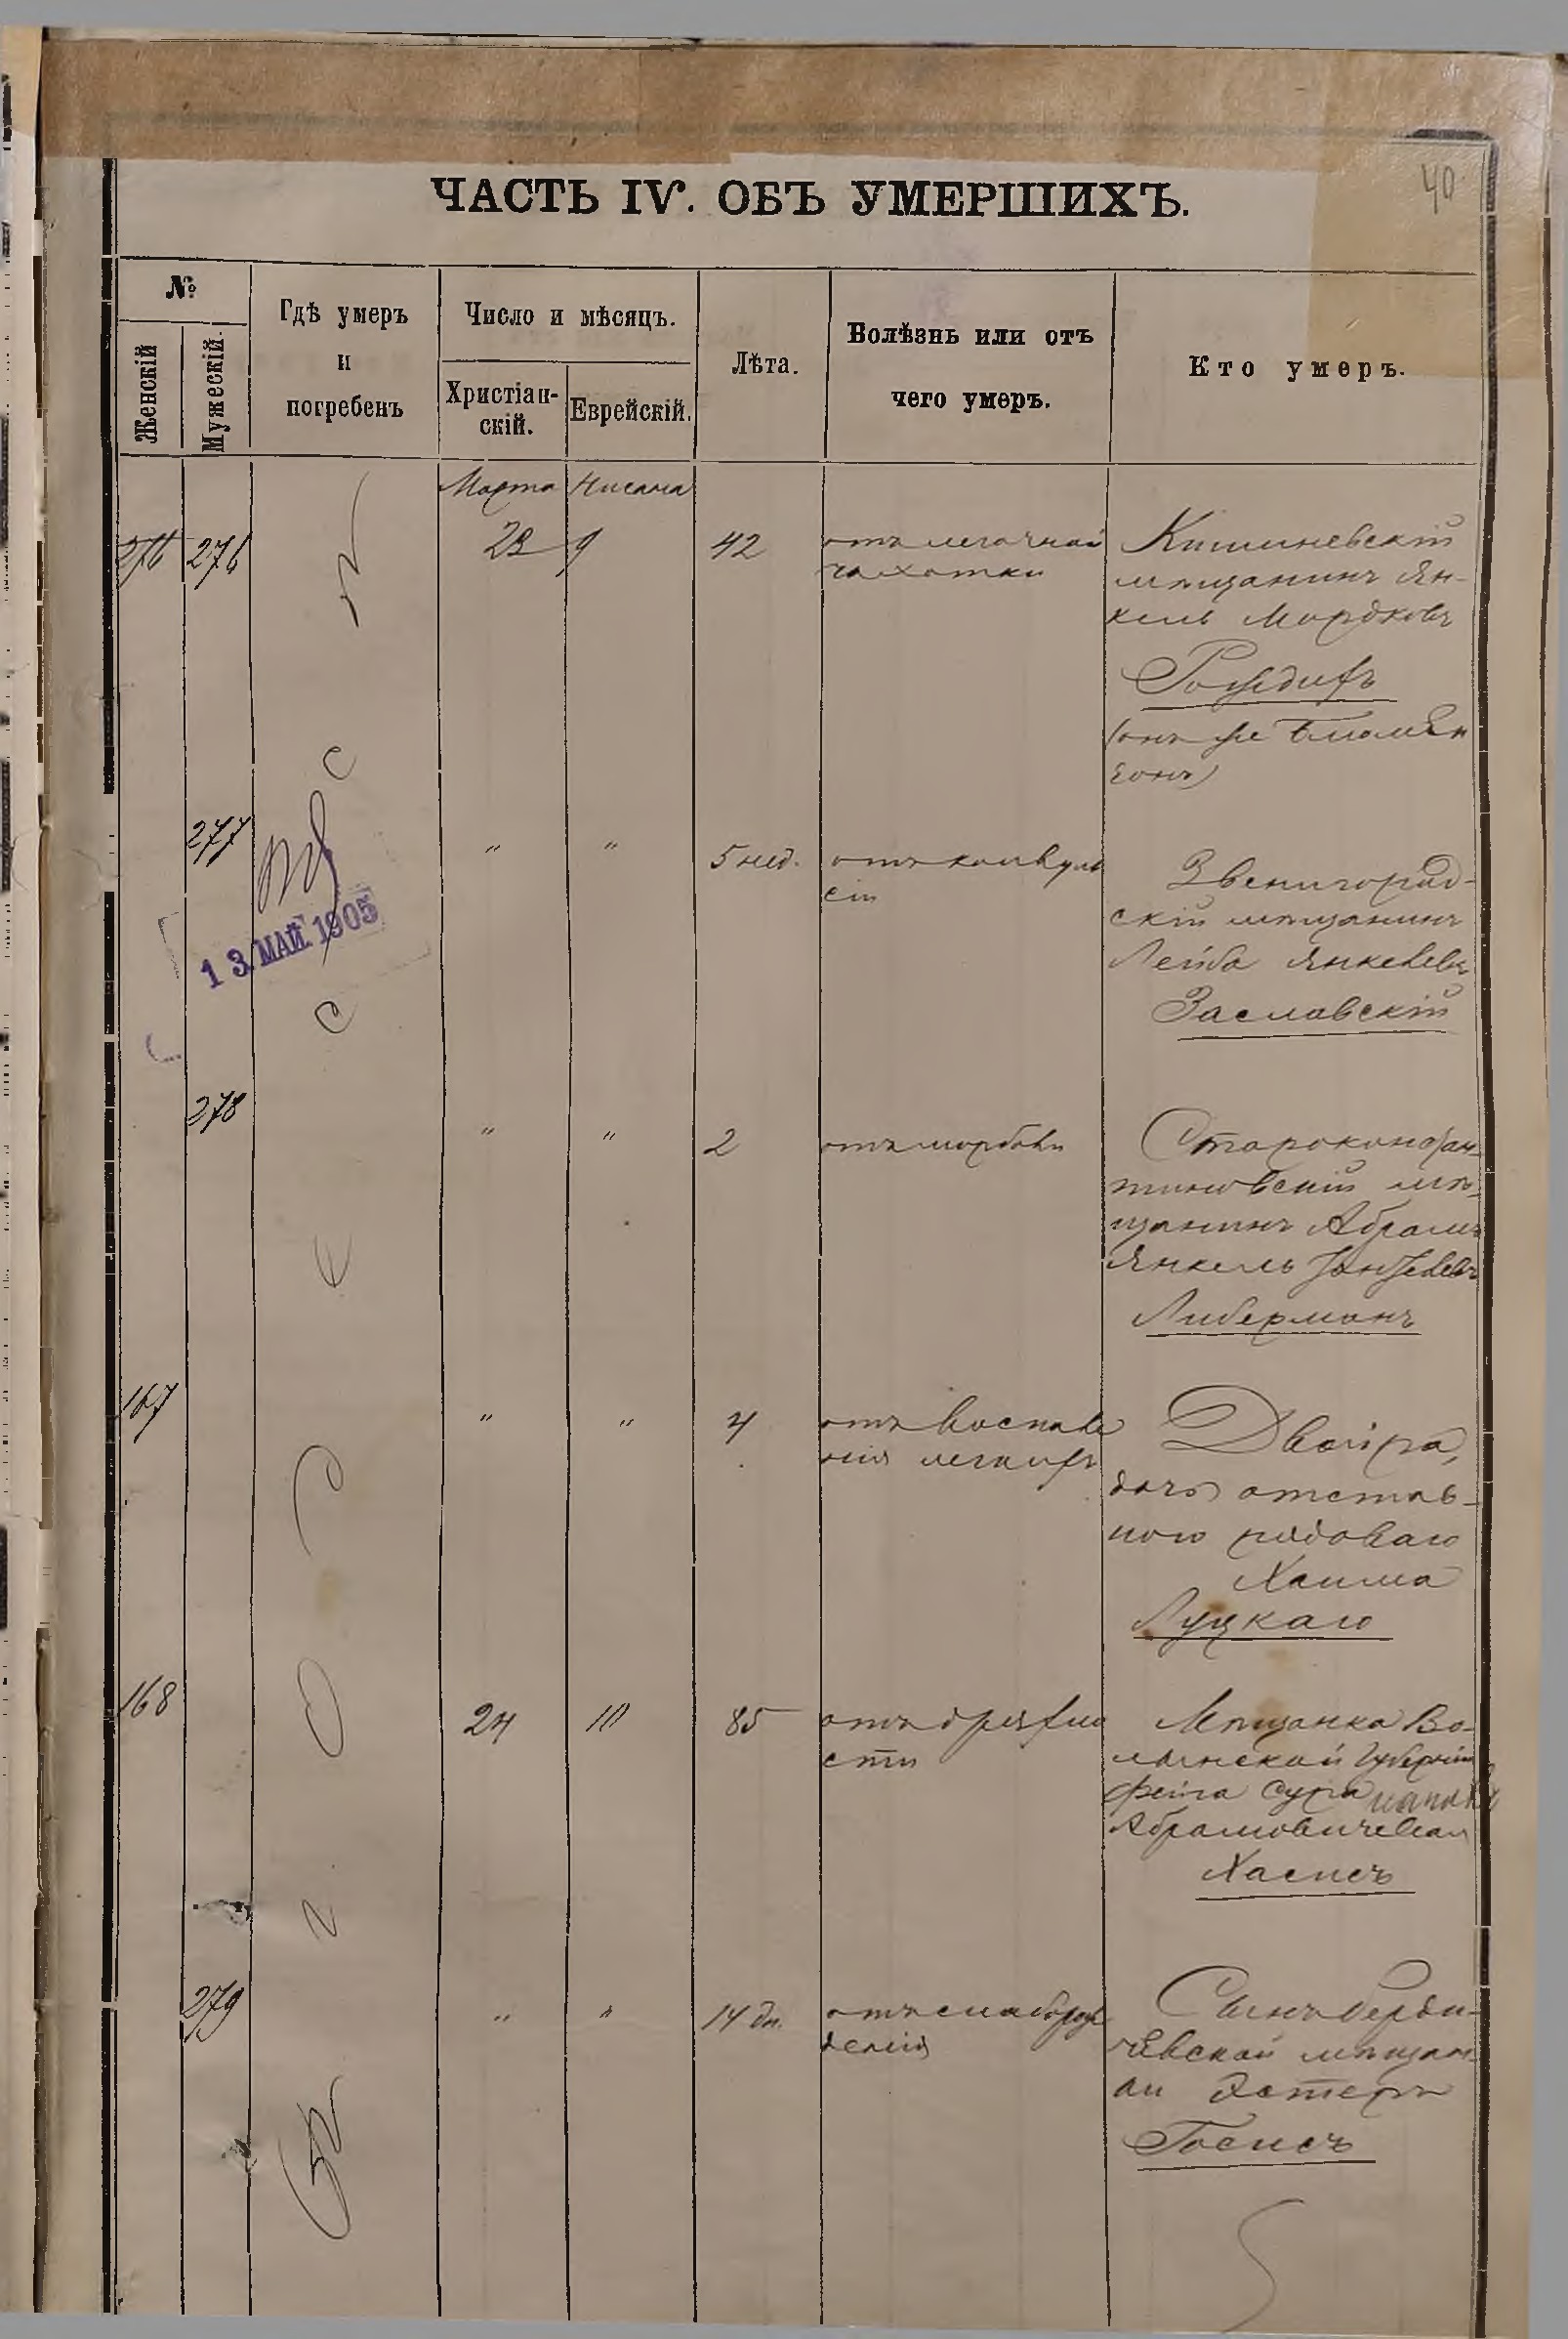 40
ЧАСТЬ IV. ОБЪ УМЕРШИХЪ.
№
Женскій
Мужескій.
Гдѣ умеръ
и
погребенъ
Число и мѣсяцъ.
Христіан-
скій.
Еврейскій.
Лѣта.
Болѣзнь или отъ
чего умеръ.
Кто умеръ.
Марта Нисана
276 276 23 9 42
отъ легочной
чахотки
Кишиневскій
мѣщанинъ Ян-
кель Мордковъ
(онъ же
277 " " 5 нед.
отъ конвуль
сій
Звенигород-
скій мѣщанинъ
Лейба Янкелевъ
Заславскій
13 МАЙ 1905
278 " " 2
отъ
Староконстан-
тиновскій мѣ-
щанинъ Абрамъ
Янкель
Либерманъ
167 " " 4
отъ воспале
нія легкихъ
Двойра,
дочь отстав-
ного рядоваго
Хаима
Луцкаго
168 24 10 85
отъ дряхло
сти
Мѣщанка Во-
лынской Губерніи
Фейга Сура
Абрамовичева
Хаспсъ
279 " " 14 дн.
отъ слаборож
денія
Сынъ Берди-
чевской мѣщан-
ки Эстеръ
Госпсъ
Одесса